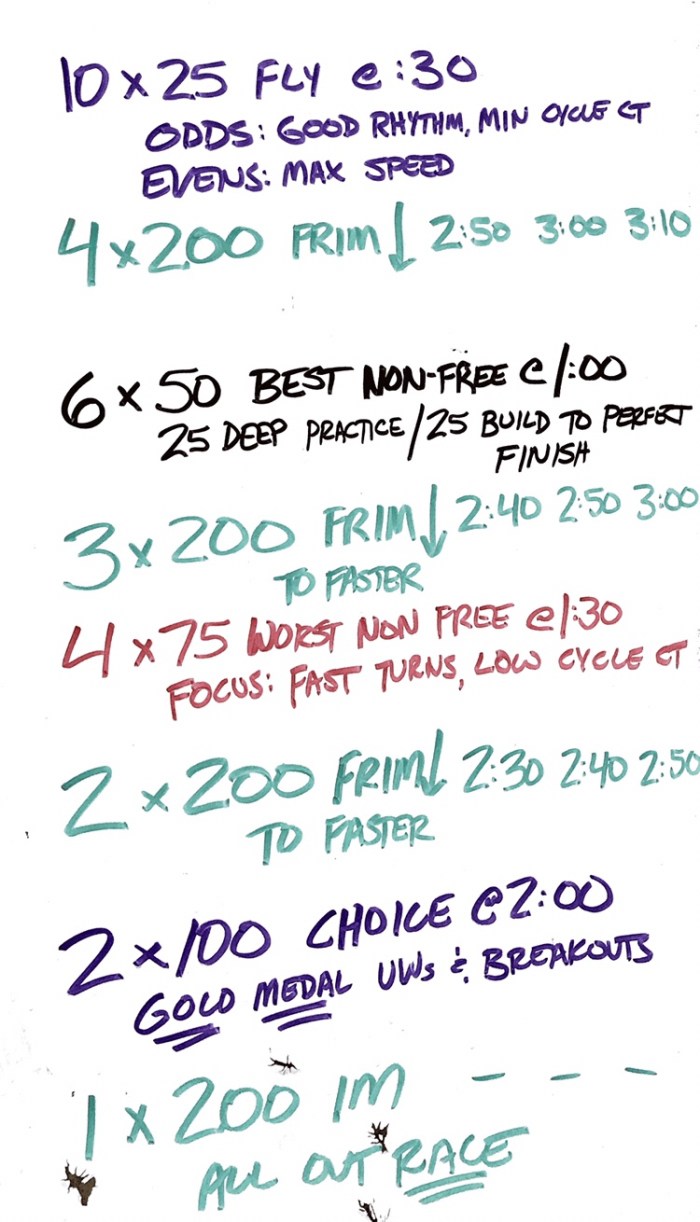 10 x 25 FLY @ :30
ODDS: GOOD RHYTHM, MIN CYCLE CT
EVENS: MAX SPEED
4 x 200 FRIM ↓ 2:50 3:00 3:10
6 x 50 BEST NON-FREE @ 1:00
25 DEEP PRACTICE / 25 BUILD TO PERFECT
FINISH
3 x 200 FRIM ↓ 2:40 2:50 3:00
TO FASTER
4 x 75 WORST NON FREE @ 1:30
FOCUS: FAST TURNS, LOW CYCLE CT
2 x 200 FRIM ↓ 2:30 2:40 2:50
TO FASTER
2 x 100 CHOICE @ 2:00
GOLD MEDAL UWs & BREAKOUTS
1 x 200 IM — — —
ALL OUT RACE